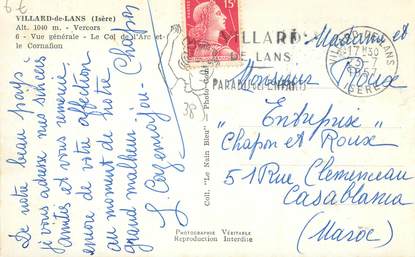 6€
VILLARD-de-LANS (Isère)
Alt. 1040 m. - Vercors
6 - Vue générale - Le Col de l'Arc et
le Cornafion
De notre beau pays
je vous adresse nos sincères
amitiés et vous remercie
encore de votre affection
au moment de notre
grand malheur.
Coll. "Le Nain Bleu"
PHOTOGRAPHIE VÉRITABLE
Reproduction Interdite
15F
VILLARD
DE LANS
PARADIS
17H30
ISÈRE
Madame et
Monsieur
"Entreprise"
Chapon et Roux
51 Rue Clemenceau
Casablanca
(Maroc)